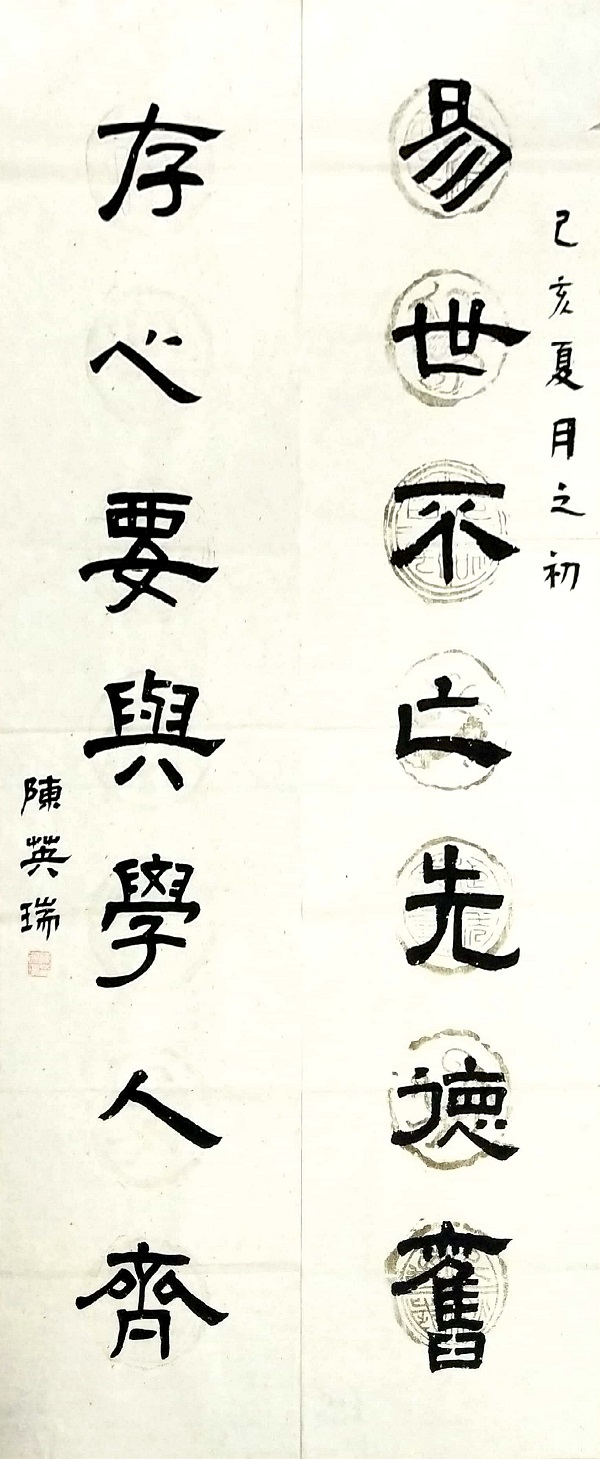 己亥夏月之初
易世不亡先德舊
存心要與學人齊
陳英瑞